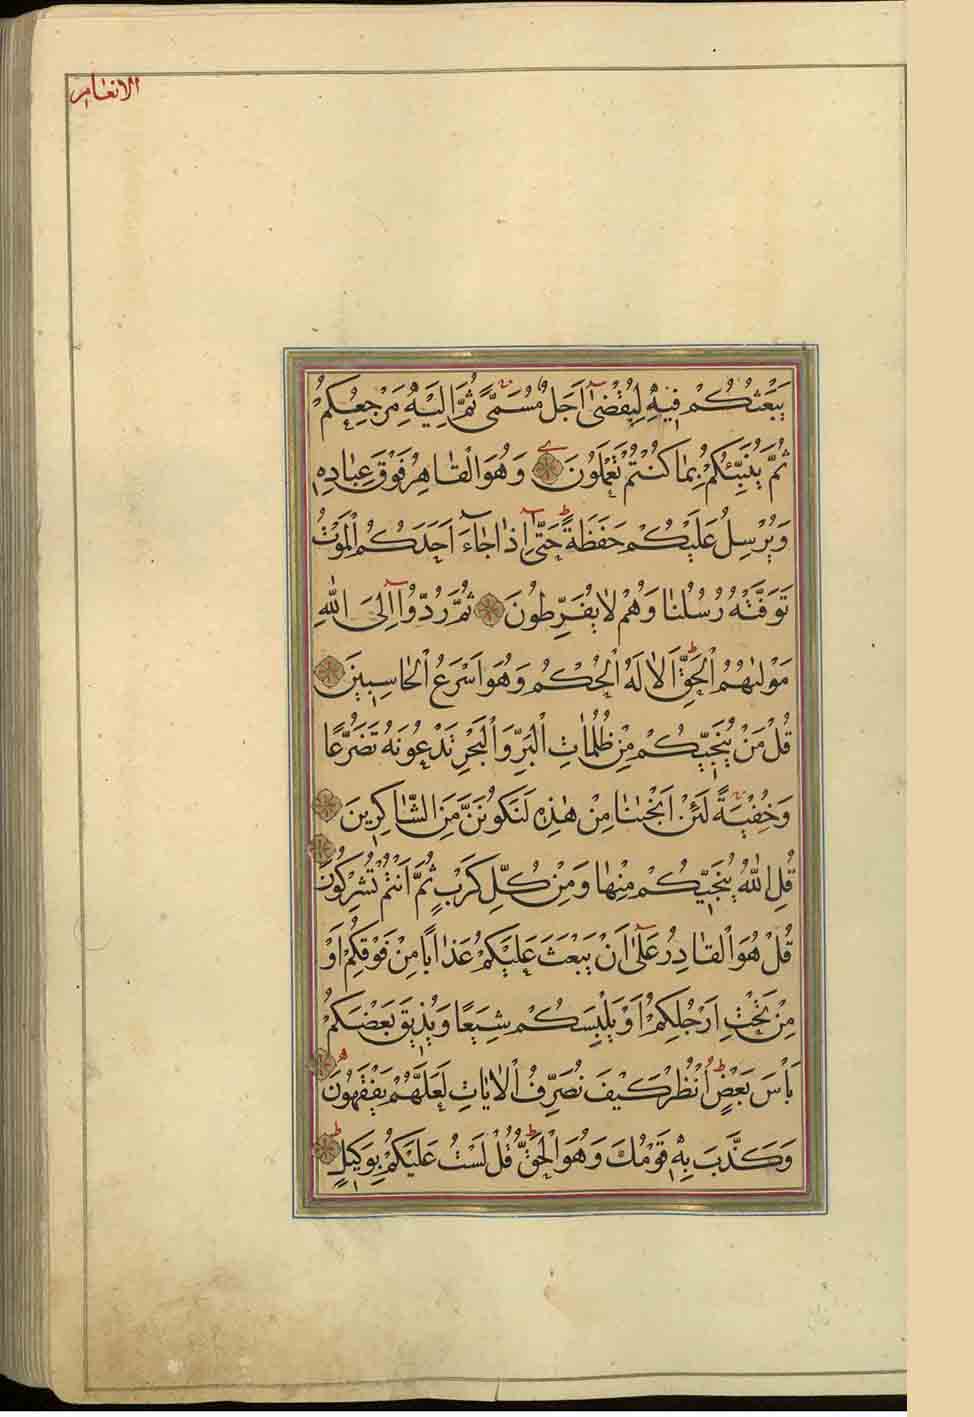 الانعام
يَبْعَثُكُمْ فِيهِ لِيُقْضٰٓى اَجَلٌ مُسَمًّى ثُمَّ اِلَيْهِ مَرْجِعُكُمْ
ثُمَّ يُنَبِّئُكُمْ بِمَا كُنْتُمْ تَعْمَلُونَ وَهُوَ الْقَاهِرُ فَوْقَ عِبَادِهِ
وَيُرْسِلُ عَلَيْكُمْ حَفَظَةً حَتّٰٓى اِذَا جَاءَ اَحَدَكُمُ الْمَوْتُ
تَوَفَّتْهُ رُسُلُنَا وَهُمْ لَا يُفَرِّطُونَ ثُمَّ رُدُّوٓا اِلَى اللّٰهِ
مَوْلٰيهُمُ الْحَقِّ اَلَا لَهُ الْحُكْمُ وَهُوَ اَسْرَعُ الْحَاسِبِينَ
قُلْ مَنْ يُنَجِّيكُمْ مِنْ ظُلُمَاتِ الْبَرِّ وَالْبَحْرِ تَدْعُونَهُ تَضَرُّعًا
وَخُفْيَةً لَئِنْ اَنْجَيْتَنَا مِنْ هٰذِهِ لَنَكُونَنَّ مِنَ الشَّاكِرِينَ
قُلِ اللّٰهُ يُنَجِّيكُمْ مِنْهَا وَمِنْ كُلِّ كَرْبٍ ثُمَّ اَنْتُمْ تُشْرِكُونَ
قُلْ هُوَ الْقَادِرُ عَلٰٓى اَنْ يَبْعَثَ عَلَيْكُمْ عَذَابًا مِنْ فَوْقِكُمْ اَوْ
مِنْ تَحْتِ اَرْجُلِكُمْ اَوْ يَلْبِسَكُمْ شِيَعًا وَيُذِيقَ بَعْضَكُمْ
بَأْسَ بَعْضٍ اُنْظُرْ كَيْفَ نُصَرِّفُ الْاٰيَاتِ لَعَلَّهُمْ يَفْقَهُونَ
وَكَذَّبَ بِهِ قَوْمُكَ وَهُوَ الْحَقُّ قُلْ لَسْتُ عَلَيْكُمْ بِوَكِيلٍ